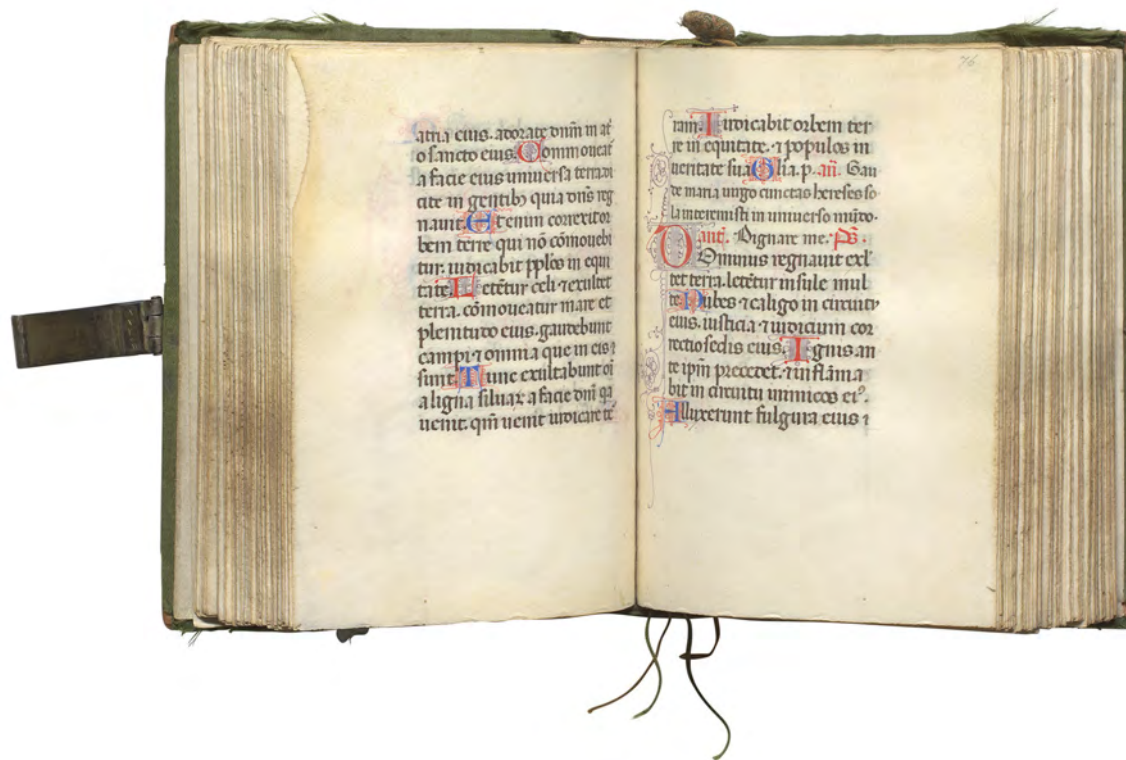 atria eius. adorate dnm̄ in at
o sancto eius. Commoueat̄
a facie eius uniuersa terra di
cite in gentibꝫ quia dn̄s reg
nauit. Etenim correxit or
bem terre qui nō cōmouebi
tur. iudicabit pplo̅s in equi
tate. Letētur celi ⁊ exultet
terra. cōmoueatur mare et
plenitudo eius. gaudebunt
campi ⁊ omnia que in eis
sunt. Tunc exultabunt oī
a ligna siluaꝝ a facie dnī qa
uenit. qm̄ uenit iudicare te
76
ram. Iudicabit orbem ter
re in equitate. ⁊ populos in
ueritate sua. Glia. p. an̄. Gau
de maria uirgo cunctas hereses so
la interemisti in uniuerso mūdo.
ant̄. Dignare me. ps̄.
Dominus regnauit exl̄
tet terra. letētur insule mul
te. Nubes ⁊ caligo in circuitu
eius. iusticia ⁊ iudicium cor
rectio sedis eius. Ignis an
te ipm̄ precedet. ⁊ inflāma
bit in circuitu inimicos eiꝰ.
Alluxerunt fulgura eius ⁊